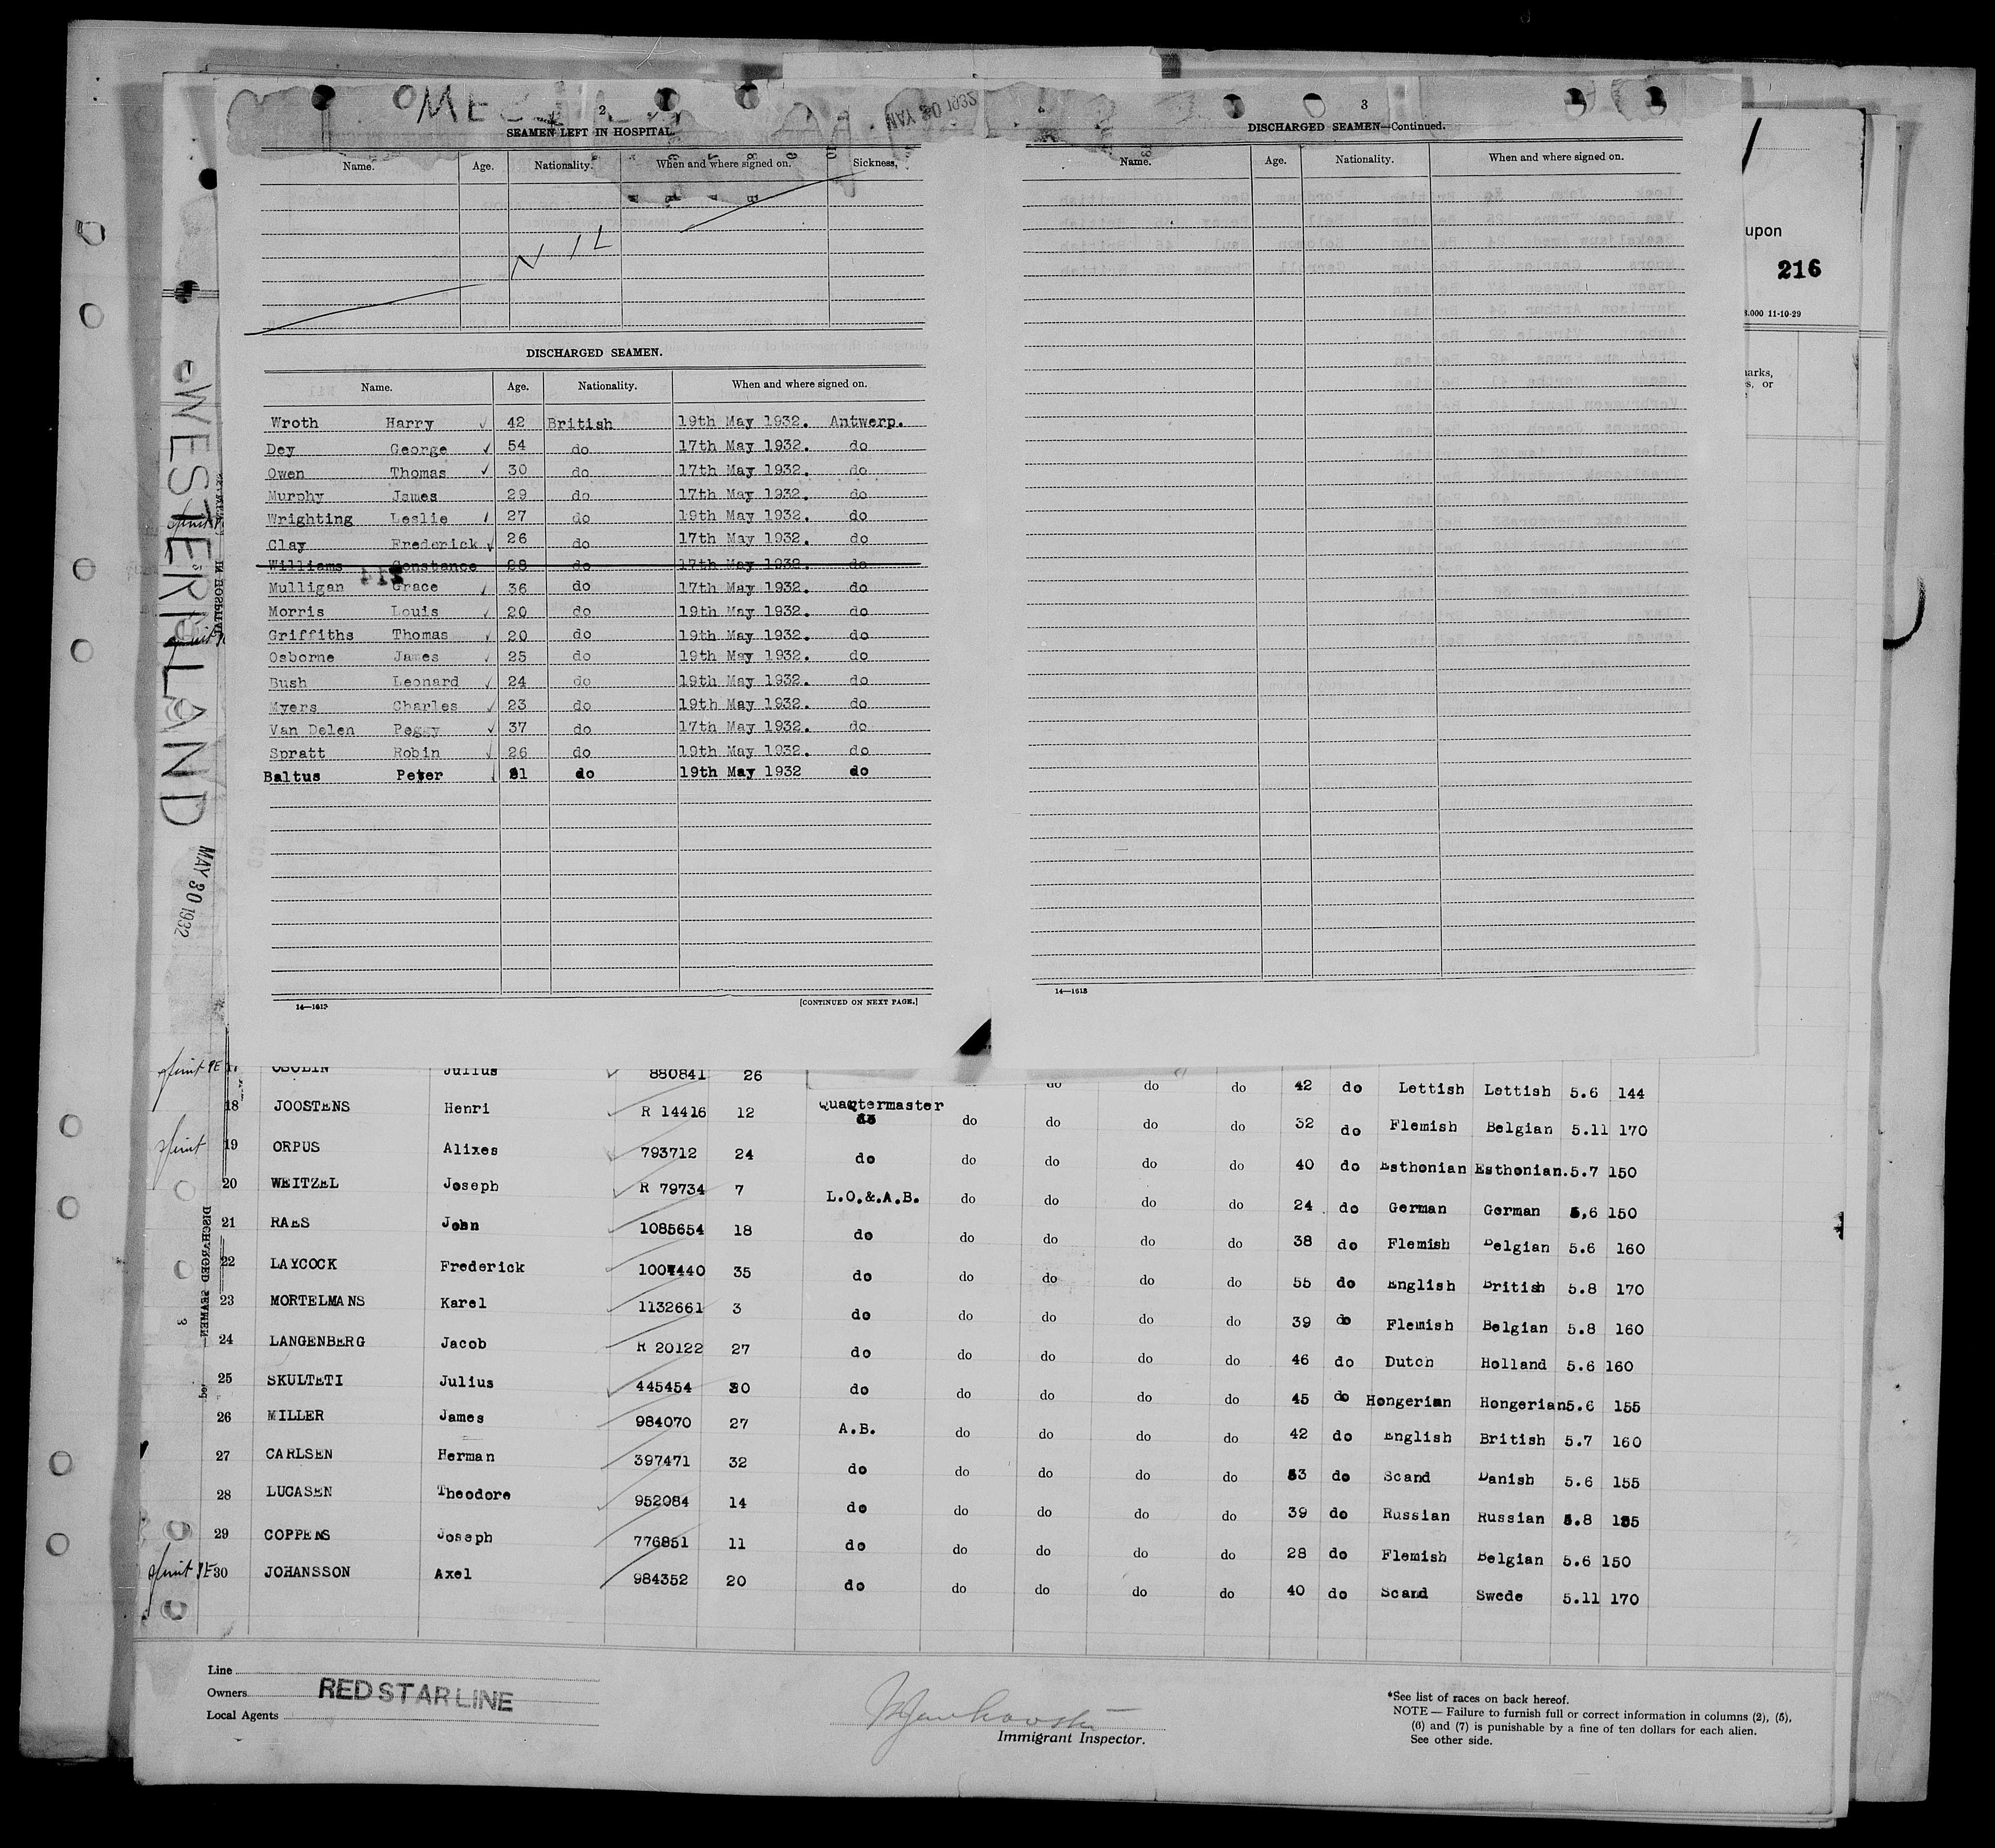 2
SEAMEN LEFT IN HOSPITAL
Name. Age. Nationality. When and where signed on. Sickness.
NIL
DISCHARGED SEAMEN.
Name. Age. Nationality. When and where signed on.
Wroth Harry 42 British 19th May 1932. Antwerp.
Dey George 54 do 17th May 1932. do
Owen Thomas 30 do 17th May 1932. do
Murphy James 29 do 17th May 1932. do
Wrighting Leslie 27 do 19th May 1932. do
Clay Frederick 26 do 17th May 1932. do
Williams Constance 28 do 17th May 1932. do
Mulligan Grace 36 do 17th May 1932. do
Morris Louis 20 do 19th May 1932. do
Griffiths Thomas 20 do 19th May 1932. do
Osborne James 25 do 19th May 1932. do
Bush Leonard 24 do 19th May 1932. do
Myers Charles 23 do 19th May 1932. do
Van Delen Peggy 37 do 17th May 1932. do
Spratt Robin 26 do 19th May 1932. do
Baltus Peter 21 do 19th May 1932 do
14—1613 [CONTINUED ON NEXT PAGE.]
MAY 30 1932
3
DISCHARGED SEAMEN—Continued.
Name. Age. Nationality. When and where signed on.
14—1613
WESTERNLAND
MAY 30 1932
upon
216
11-10-29
17 OSOLIN Julius 880841 26 do do do 42 do Lettish Lettish 5.6 144
18 JOOSTENS Henri R 14416 12 Quartermaster do do do do do 32 do Flemish Belgian 5.11 170
19 ORPUS Alixes 793712 24 do do do do do 40 do Esthonian Esthonian. 5.7 150
20 WEITZEL Joseph R 79734 7 L.O.&.A.B. do do do do 24 do German German 5,6 150
21 RAES John 1085654 18 do do do do do 38 do Flemish Belgian 5.6 160
22 LAYCOCK Frederick 1007440 35 do do do do do 55 do English British 5.8 170
23 MORTELMANS Karel 1132661 3 do do do do do 39 do Flemish Belgian 5.8 160
24 LANGENBERG Jacob R 20122 27 do do do do do 46 do Dutch Holland 5.6 160
25 SKULTETI Julius 445454 30 do do do do do 45 do Hongerian Hongerian 5.6 155
26 MILLER James 984070 27 A.B. do do do do 42 do English British 5.7 160
27 CARLSEN Herman 397471 32 do do do do do 53 do Scand Danish 5.6 155
28 LUCASEN Theodore 952084 14 do do do do do 39 do Russian Russian 5.8
29 COPPENS Joseph 776851 11 do do do do do 28 do Flemish Belgian 5.6 150
30 JOHANSSON Axel 984352 20 do do do do do 40 do Scand Swede 5.11 170
Line
Owners RED STAR LINE
Local Agents
Immigrant Inspector.
*See list of races on back hereof.
NOTE — Failure to furnish full or correct information in columns (2), (5),
(6) and (7) is punishable by a fine of ten dollars for each alien.
See other side.